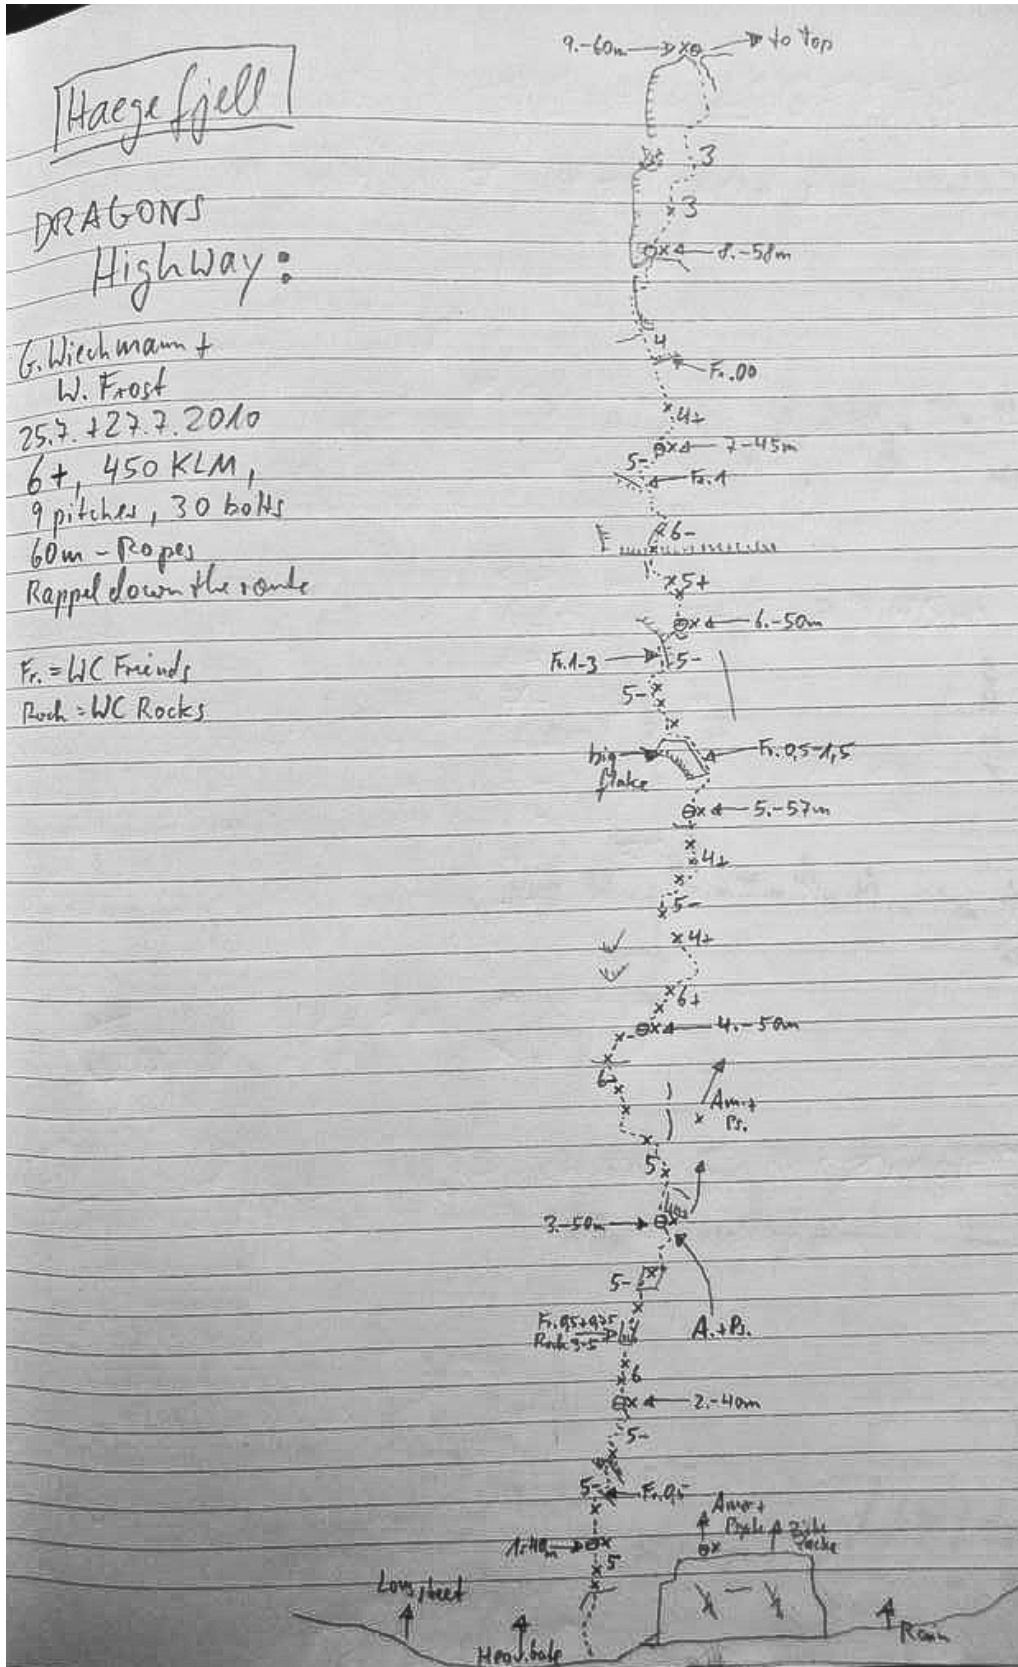 Haegefjell
DRAGONS
HighWay:
G. Wiechmann +
W. Frost
25.7.+27.7.2010
6+, 450 KLM,
9 pitches, 30 bolts
60m - Ropes
Rappel down the route
Fr. = WC Friends
Rock = WC Rocks
9.-60m
to top
3
3
8.-58m
4
Fr.00
4+
7-45m
5-
Fr.1
6-
5+
6.-50m
Fr.1-3
5-
5-
big
flake
Fr.0,5-1,5
5.-57m
4+
5-
4+
6+
4.-50m
6-
Am.+
Ps.
5
3.-50m
5-
Fr. 0,5+0,75
Rock 3-5
A.+Ps.
6
2.-40m
5-
5-
Fr.0,5
1.-40m
5
Amor+
Psyche
Longsteet
Via Lara